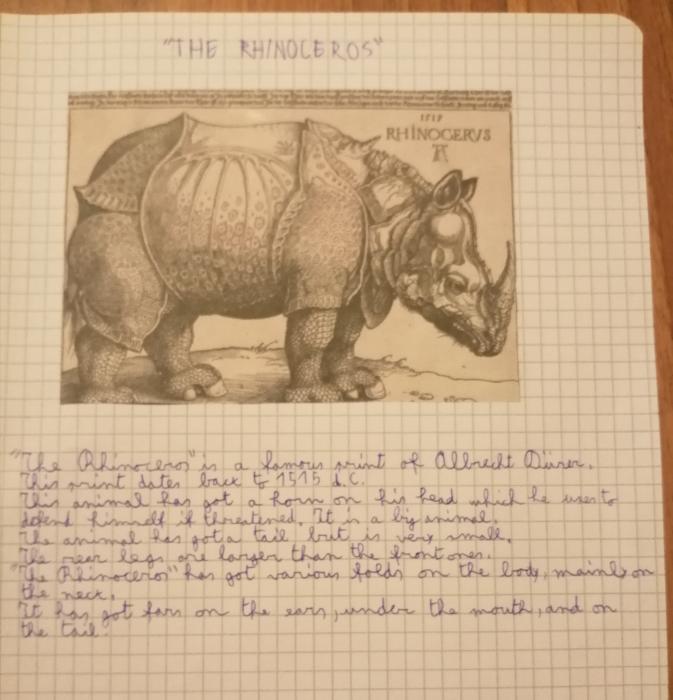 "THE RHINOCEROS"
1515
RHINOCERVS
"The Rhinoceros" is a famous print of Albrecht Dürer.
This print dates back to 1515 d.C.
This animal has got a horn on his head which he uses to
defend himself if threatened. It is a big animal.
The animal has got a tail but is very small.
The rear legs are larger than the front ones.
"The Rhinoceros" has got various folds on the body, mainly on
the neck.
It has got furs on the ears, under the mouth, and on
the tail.